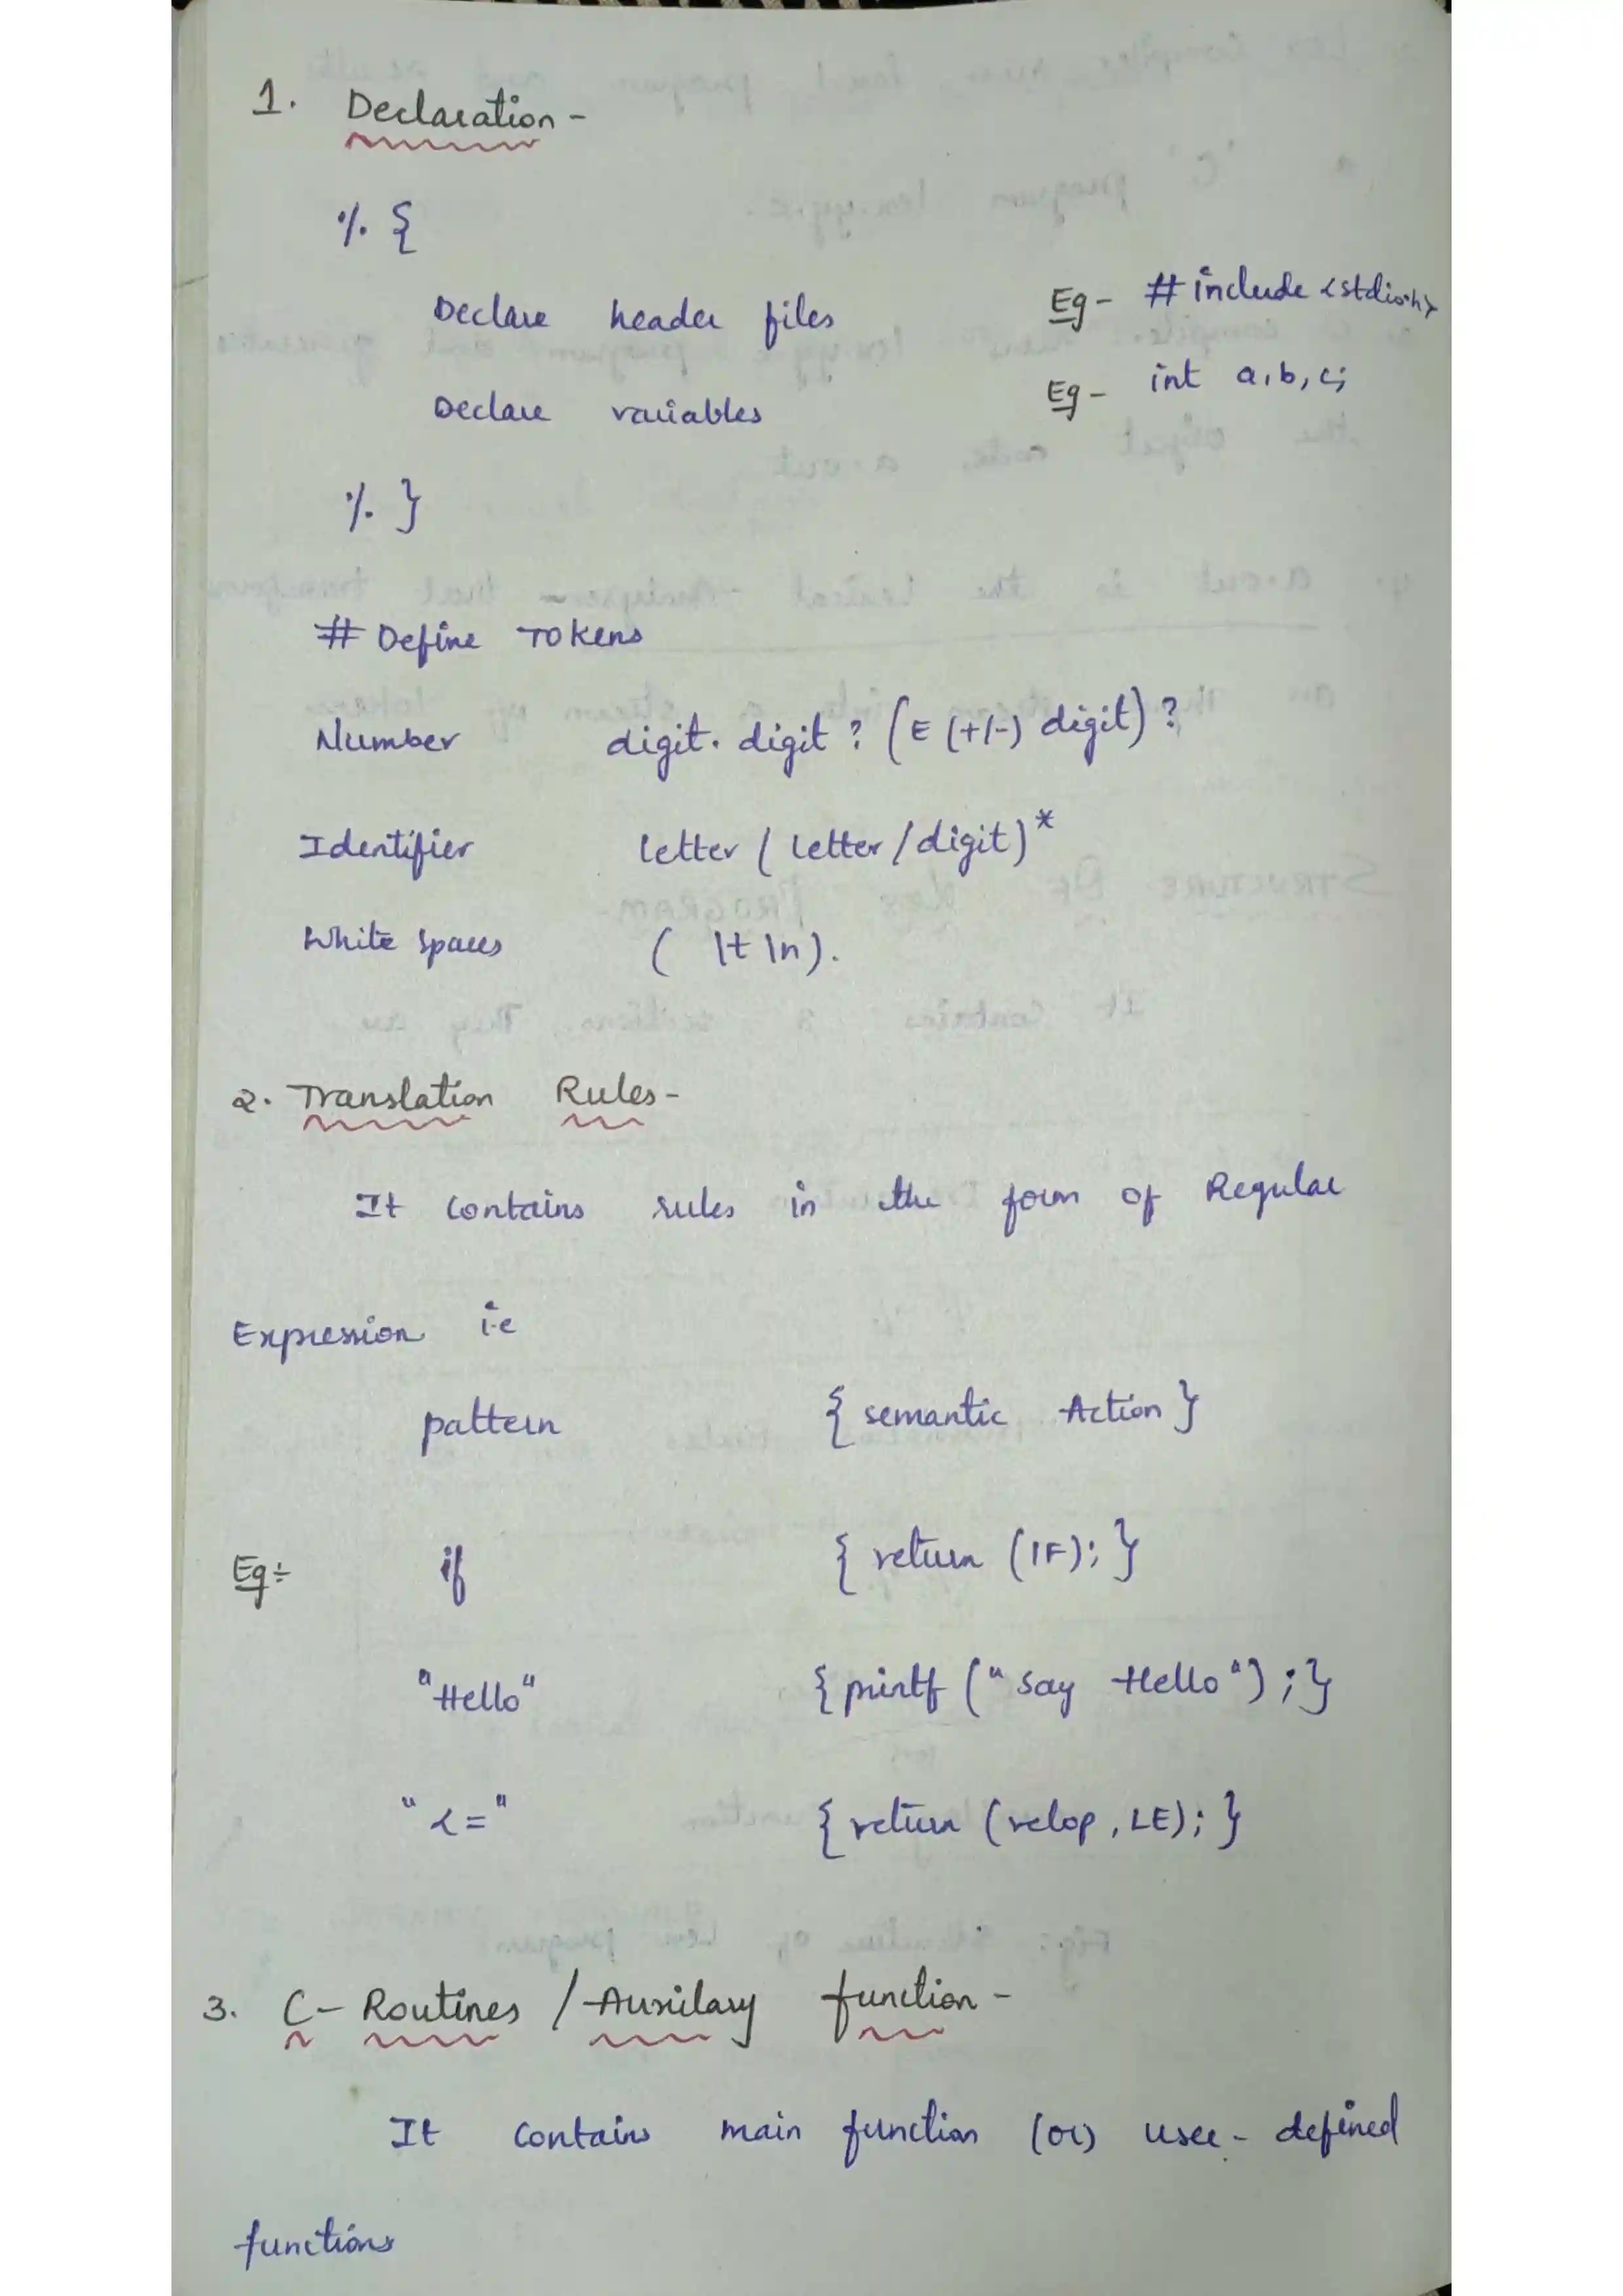 1. Declaration -
% {
Declare header files Eg - # include <stdio.h>
Declare variables Eg - int a, b, c;
% }
# Define Tokens
Number digit. digit ? (E (+/-) digit) ?
Identifier letter ( letter / digit)*
White spaces ( \t \n).
2. Translation Rules -
It contains rules in the form of Regular
Expression i.e
pattern { semantic Action }
Eg:- if { return (IF); }
"Hello" { printf (" Say Hello "); }
" <= " { return (relop, LE); }
3. C - Routines / Auxilary function -
It contains main function (or) user - defined
functions